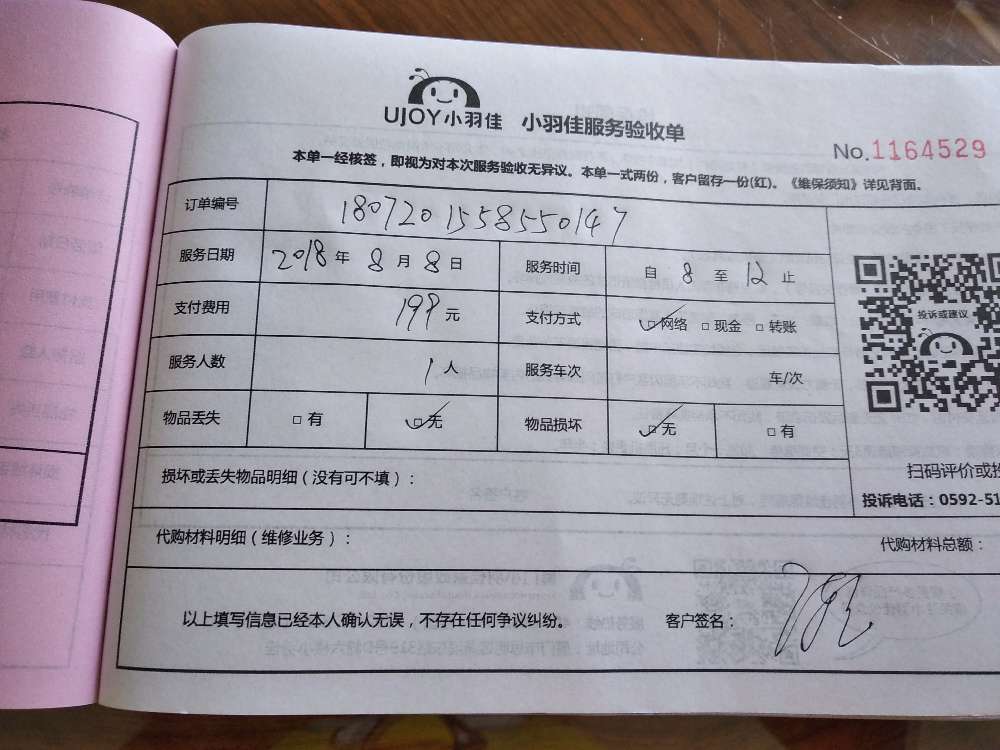 UJOY小羽佳 小羽佳服务验收单
No.1164529
本单一经核签，即视为对本次服务验收无异议。本单一式两份，客户留存一份(红)。《维保须知》详见背面。
订单编号 1807201558550147
服务日期 2018年8月8日 服务时间 自8至12止
支付费用 199元 支付方式 ☑网络 □现金 □转账
服务人数 1人 服务车次 车/次
物品丢失 □有 ☑无 物品损坏 ☑无 □有
投诉或建议
扫码评价或投
损坏或丢失物品明细（没有可不填）：
投诉电话：0592-51
代购材料明细（维修业务）：
代购材料总额：
以上填写信息已经本人确认无误，不存在任何争议纠纷。 客户签名：